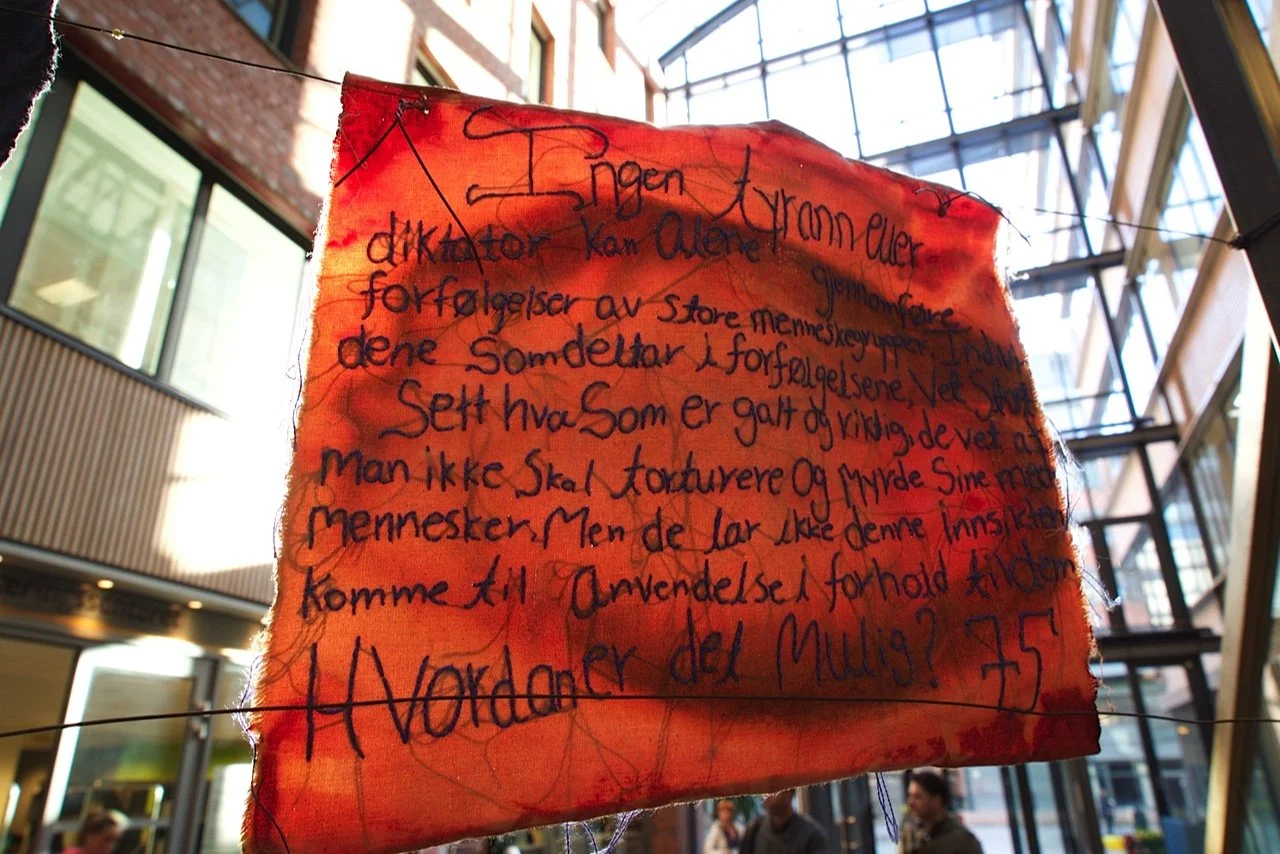 Ingen tyrann eller
diktator kan Alene gjennomføre
forfølgelser av store menneskegrupper Indivi
dene Som deltar i forfølgelsene, Vet
Sett hva Som er galt og riktig, de vet at
Man ikke Skal torturere Og Myrde Sine med
Mennesker. Men de lar ikke denne Innsikten
Komme til Anvendelse i forhold til dem
HVordan er det Mulig? 75